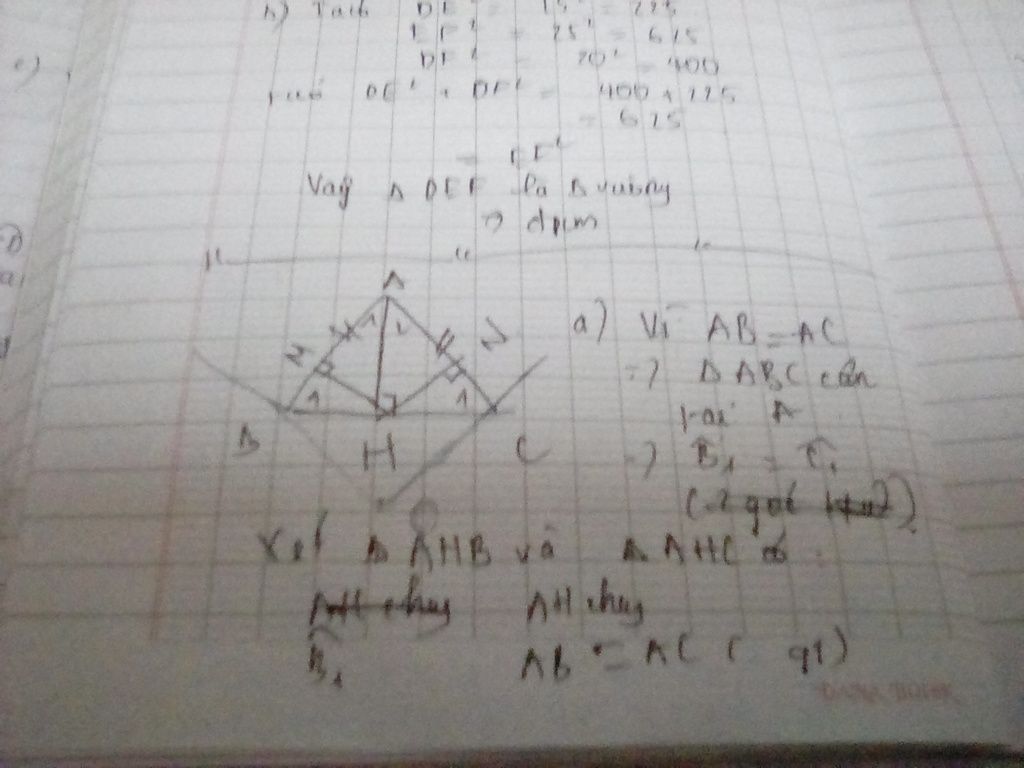 b) Tacó DE² = 15² = 225
EF² = 25² = 625
DF² = 20² = 400
DE² + DF² = 400 + 225
= 625
= EF²
Vaỹ Δ DEF là Δ vuông
=> đpcm
A
1 1
M N
1 1
B H C
a) Vì AB = AC
=> Δ ABC cân
tại A
=> B̂₁ = Ĉ₁
Xét Δ AHB và Δ AHC có
AH chug AH chug
B̂₁ AB = AC ( gt)